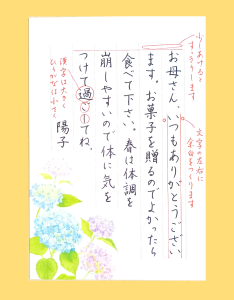 少しあけると
すっきりします
お母さん、いつもありがとうござい
ます。お菓子を贈るのでよかったら
食べて下さい。春は体調を
崩しやすいので体に気を
つけて過ごしてね。
陽子
文字の左右に
余白をつくります
漢字は大きく
ひらがなは小さく